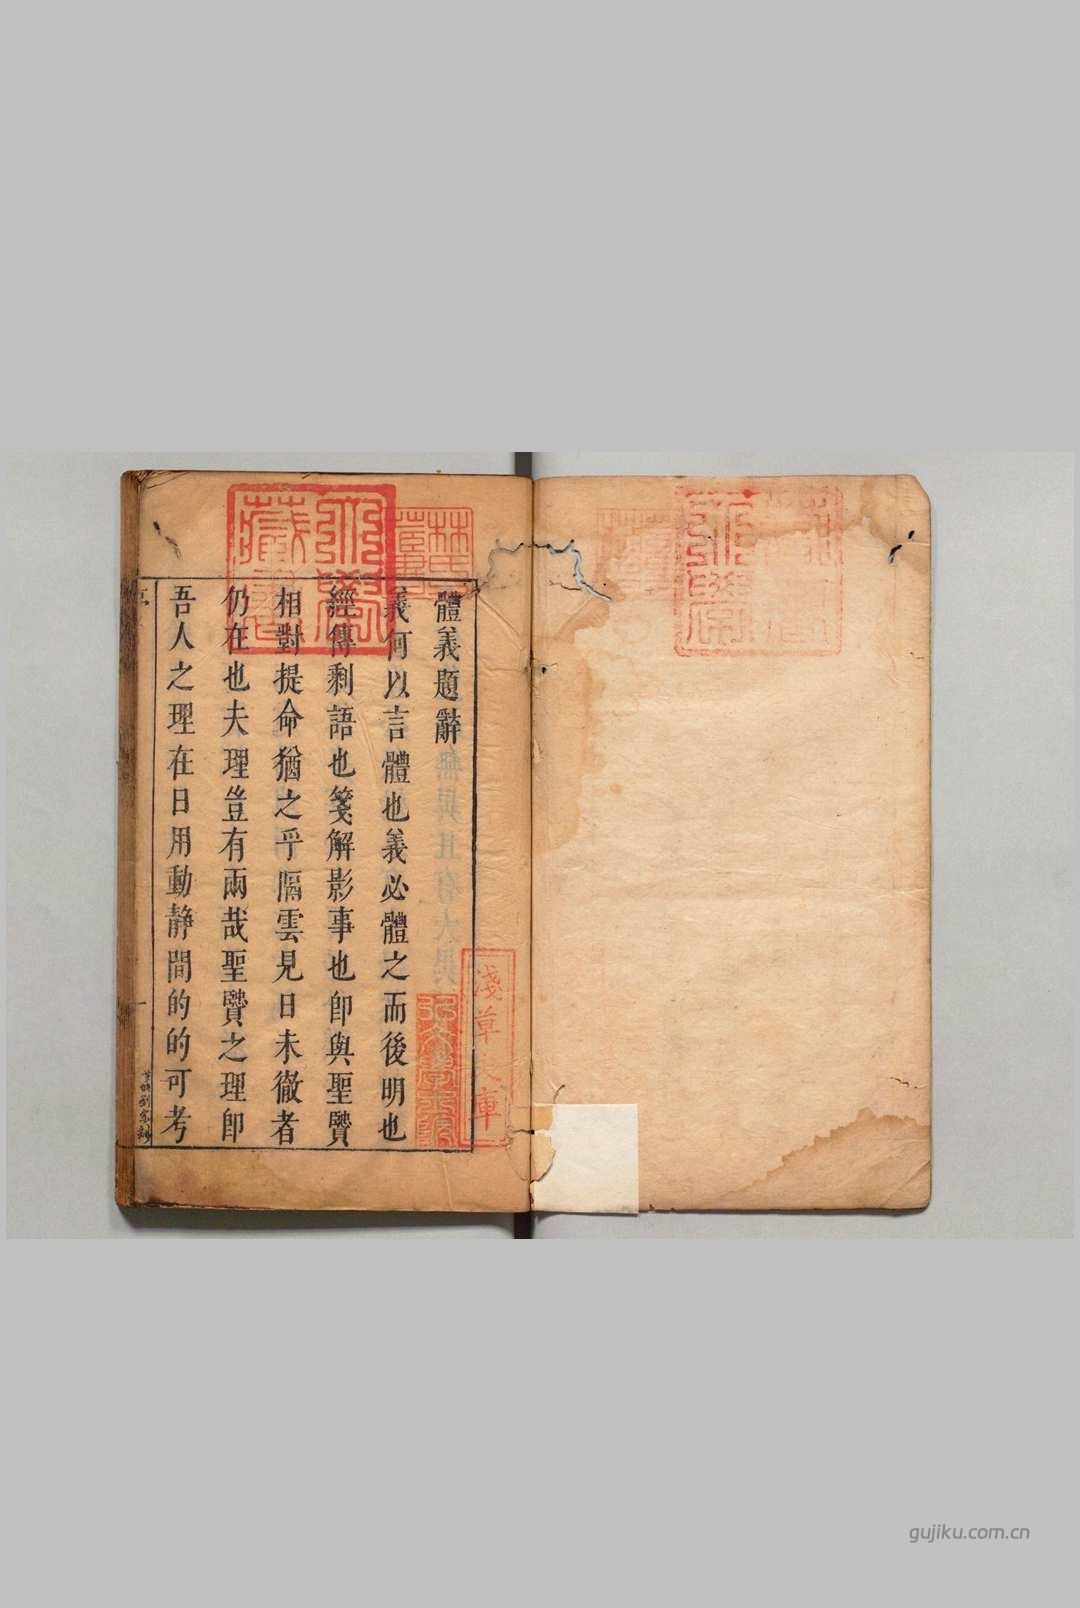 體義題辭
義何以言體也義必體之而後明也
經傳剩語也箋解影事也卽與聖贒
相對提命猶之乎隔雲見日未徹者
仍在也夫理豈有兩哉聖贒之理卽
吾人之理在日用動静間的的可考
一
淺草文庫
gujiku.com.cn